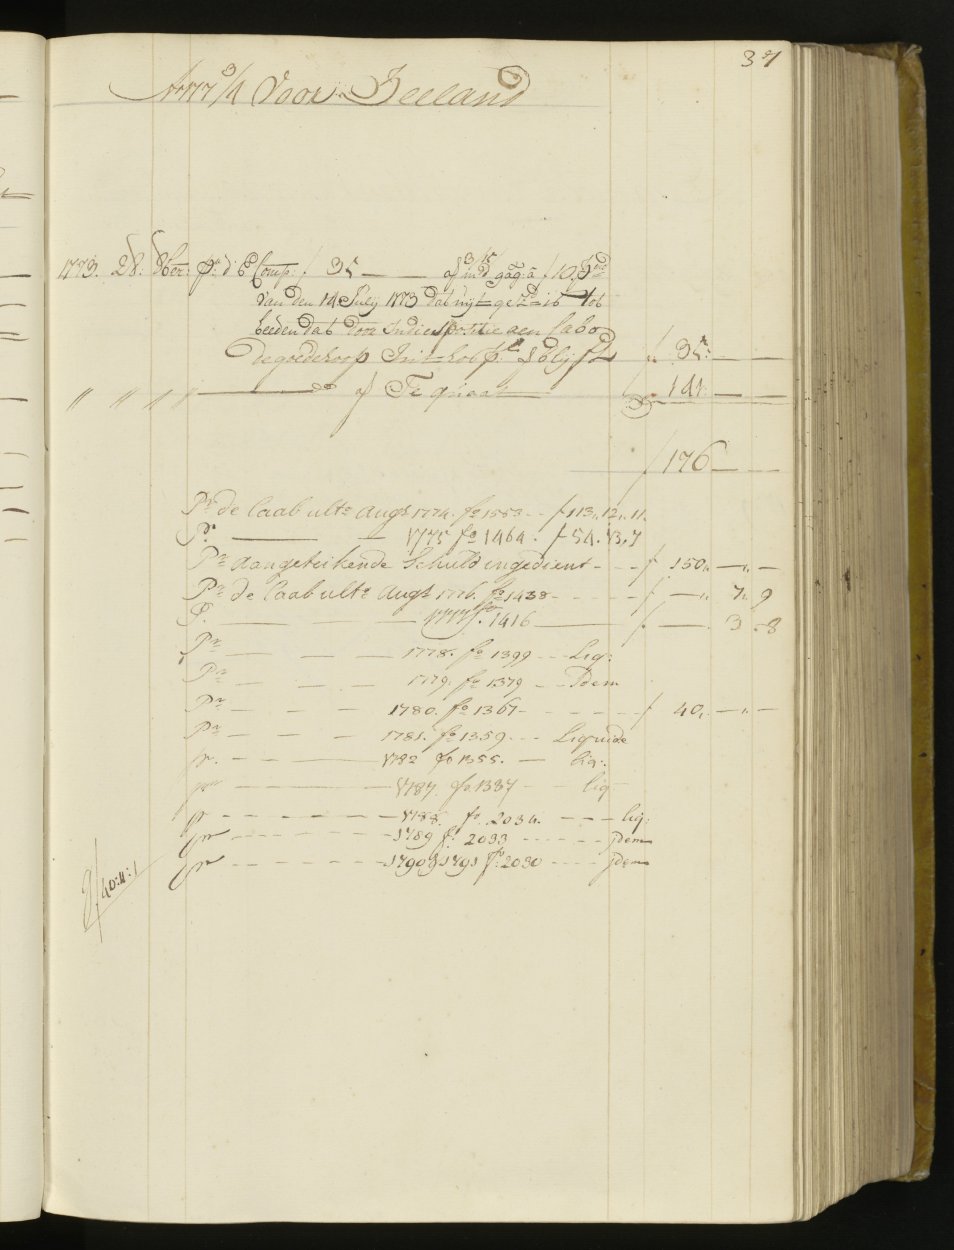 37
Ao 177 3/4 Voor Zeeland
1773. 28: 8ber: Pr: d' E Comp: ƒ 35 — — af 3 15/ md gag: a ƒ 10
van den 14 Julij 1773 dat uijt gezt is tot
heeden dat door Indispositie aen Cabo
de goede hoop Int hospl. is blijft „ 35: — —
„ „ „ „ — do af Te quaat „ 141: — —
ƒ 176 — —
Pr de Caab ulto Augs 1774. fo 1553 - - ƒ 113„ 12„ 11.
Pr. — — 1775 fo 1464. ƒ 54. 13„ 7
Pr aangetekende Schuld ingedient - - - ƒ 150„ —„ —
Pr de Caab ulto Augs 1776. fo 1438 - - - - - - ƒ —„ 7„ 9
P. — — 1777 fo. 1416 — ƒ —. 3 „ 8
Pr — — — 1778. fo 1399 - - Liq:
Pr — — — 1779. fo 1379 - - Idem
Pr — — — 1780. fo 1367 - - - - - - ƒ 40„ —„ —
Pr — — — 1781. fo 1359 - - - Liquide
pr. — — 1782 fo 1355. — liq:
pr — — 1787. fo 1337 — liq
pr - - - - - - - 1788. fo. 2034. - - - liq:
pr - - - - - - - 1789 f: 2033 - - - - - jdem
pr - - - - - - - 1790 & 1791 fo: 2030 - - - - jdem
ƒ 40:11:1